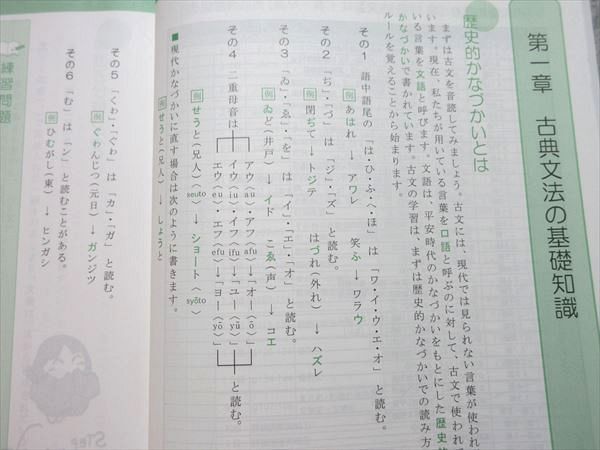 第一章　古典文法の基礎知識
歴史的かなづかいとは
まずは古文を音読してみましょう。古文には、現代では見られない言葉が使われ
います。現在、私たちが用いている言葉を口語と呼ぶのに対して、古文で使われて
いる言葉を文語と呼びます。文語は、平安時代のかなづかいをもとにした歴史的
かなづかいで書かれています。古文の学習は、まずは歴史的かなづかいでの読み方
ルールを覚えることから始まります。
その1　語中語尾の「は・ひ・ふ・へ・ほ」は「ワ・イ・ウ・エ・オ」と読む。
例 あはれ → アワレ　笑ふ → ワラウ
その2　「ぢ」・「づ」は「ジ」・「ズ」と読む。
例 閉ぢて → トジテ　はづれ（外れ） → ハズレ
その3　「ゐ」・「ゑ」・「を」は「イ」・「エ」・「オ」と読む。
例 ゐど（井戸） → イド　こゑ（声） → コエ
その4　二重母音は
アウ（au）・アフ（afu）→「オー（ō）」
イウ（iu）・イフ（ifu）→「ユー（yū）」
エウ（eu）・エフ（efu）→「ヨー（yō）」
と読む。
例 せうと（兄人） → ショート
（seuto）　（syōto）
■現代かなづかいに直す場合は次のように書きます。
例 せうと（兄人） → しょうと
その5　「くわ」・「ぐわ」は「カ」・「ガ」と読む。
例 ぐわんじつ（元日） → ガンジツ
その6　「む」は「ン」と読むことがある。
例 ひむがし（東） → ヒンガシ
練習問題
STEP